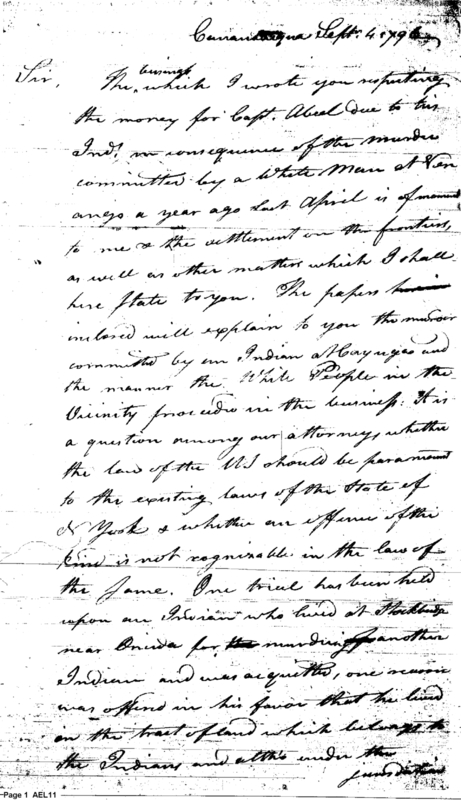 Canandaigua Sept. 4 1796
Sir,
business
The which I wrote you respecting
the money for Capt. Abeel due to his
Inds. in consequence of the murder
committed by a White Man at Ven
ango a year ago last April is of moment
to me & the settlement on the frontiers,
as well as other matters which I shall
here State to you. The papers
inclosed will explain to you the murder
committed by an Indian at Cayuga and
the manner the White People in the
Vicinity proceeded in the business: It is
a question among our attorneys whether
the law of the US should be paramount
to the existing laws of the State of
N York & whether an offence of the
kind is not cognizable in the law of
the Same. One trial has been held
upon an Indian who lived at Stockbridge
near Oneida for murdering another
Indian and was acquitted, one reason
was offered in his favor that he lived
on the tract of land which belongs to
the Indians and altho under the
jurisdiction
Page 1 AEL11